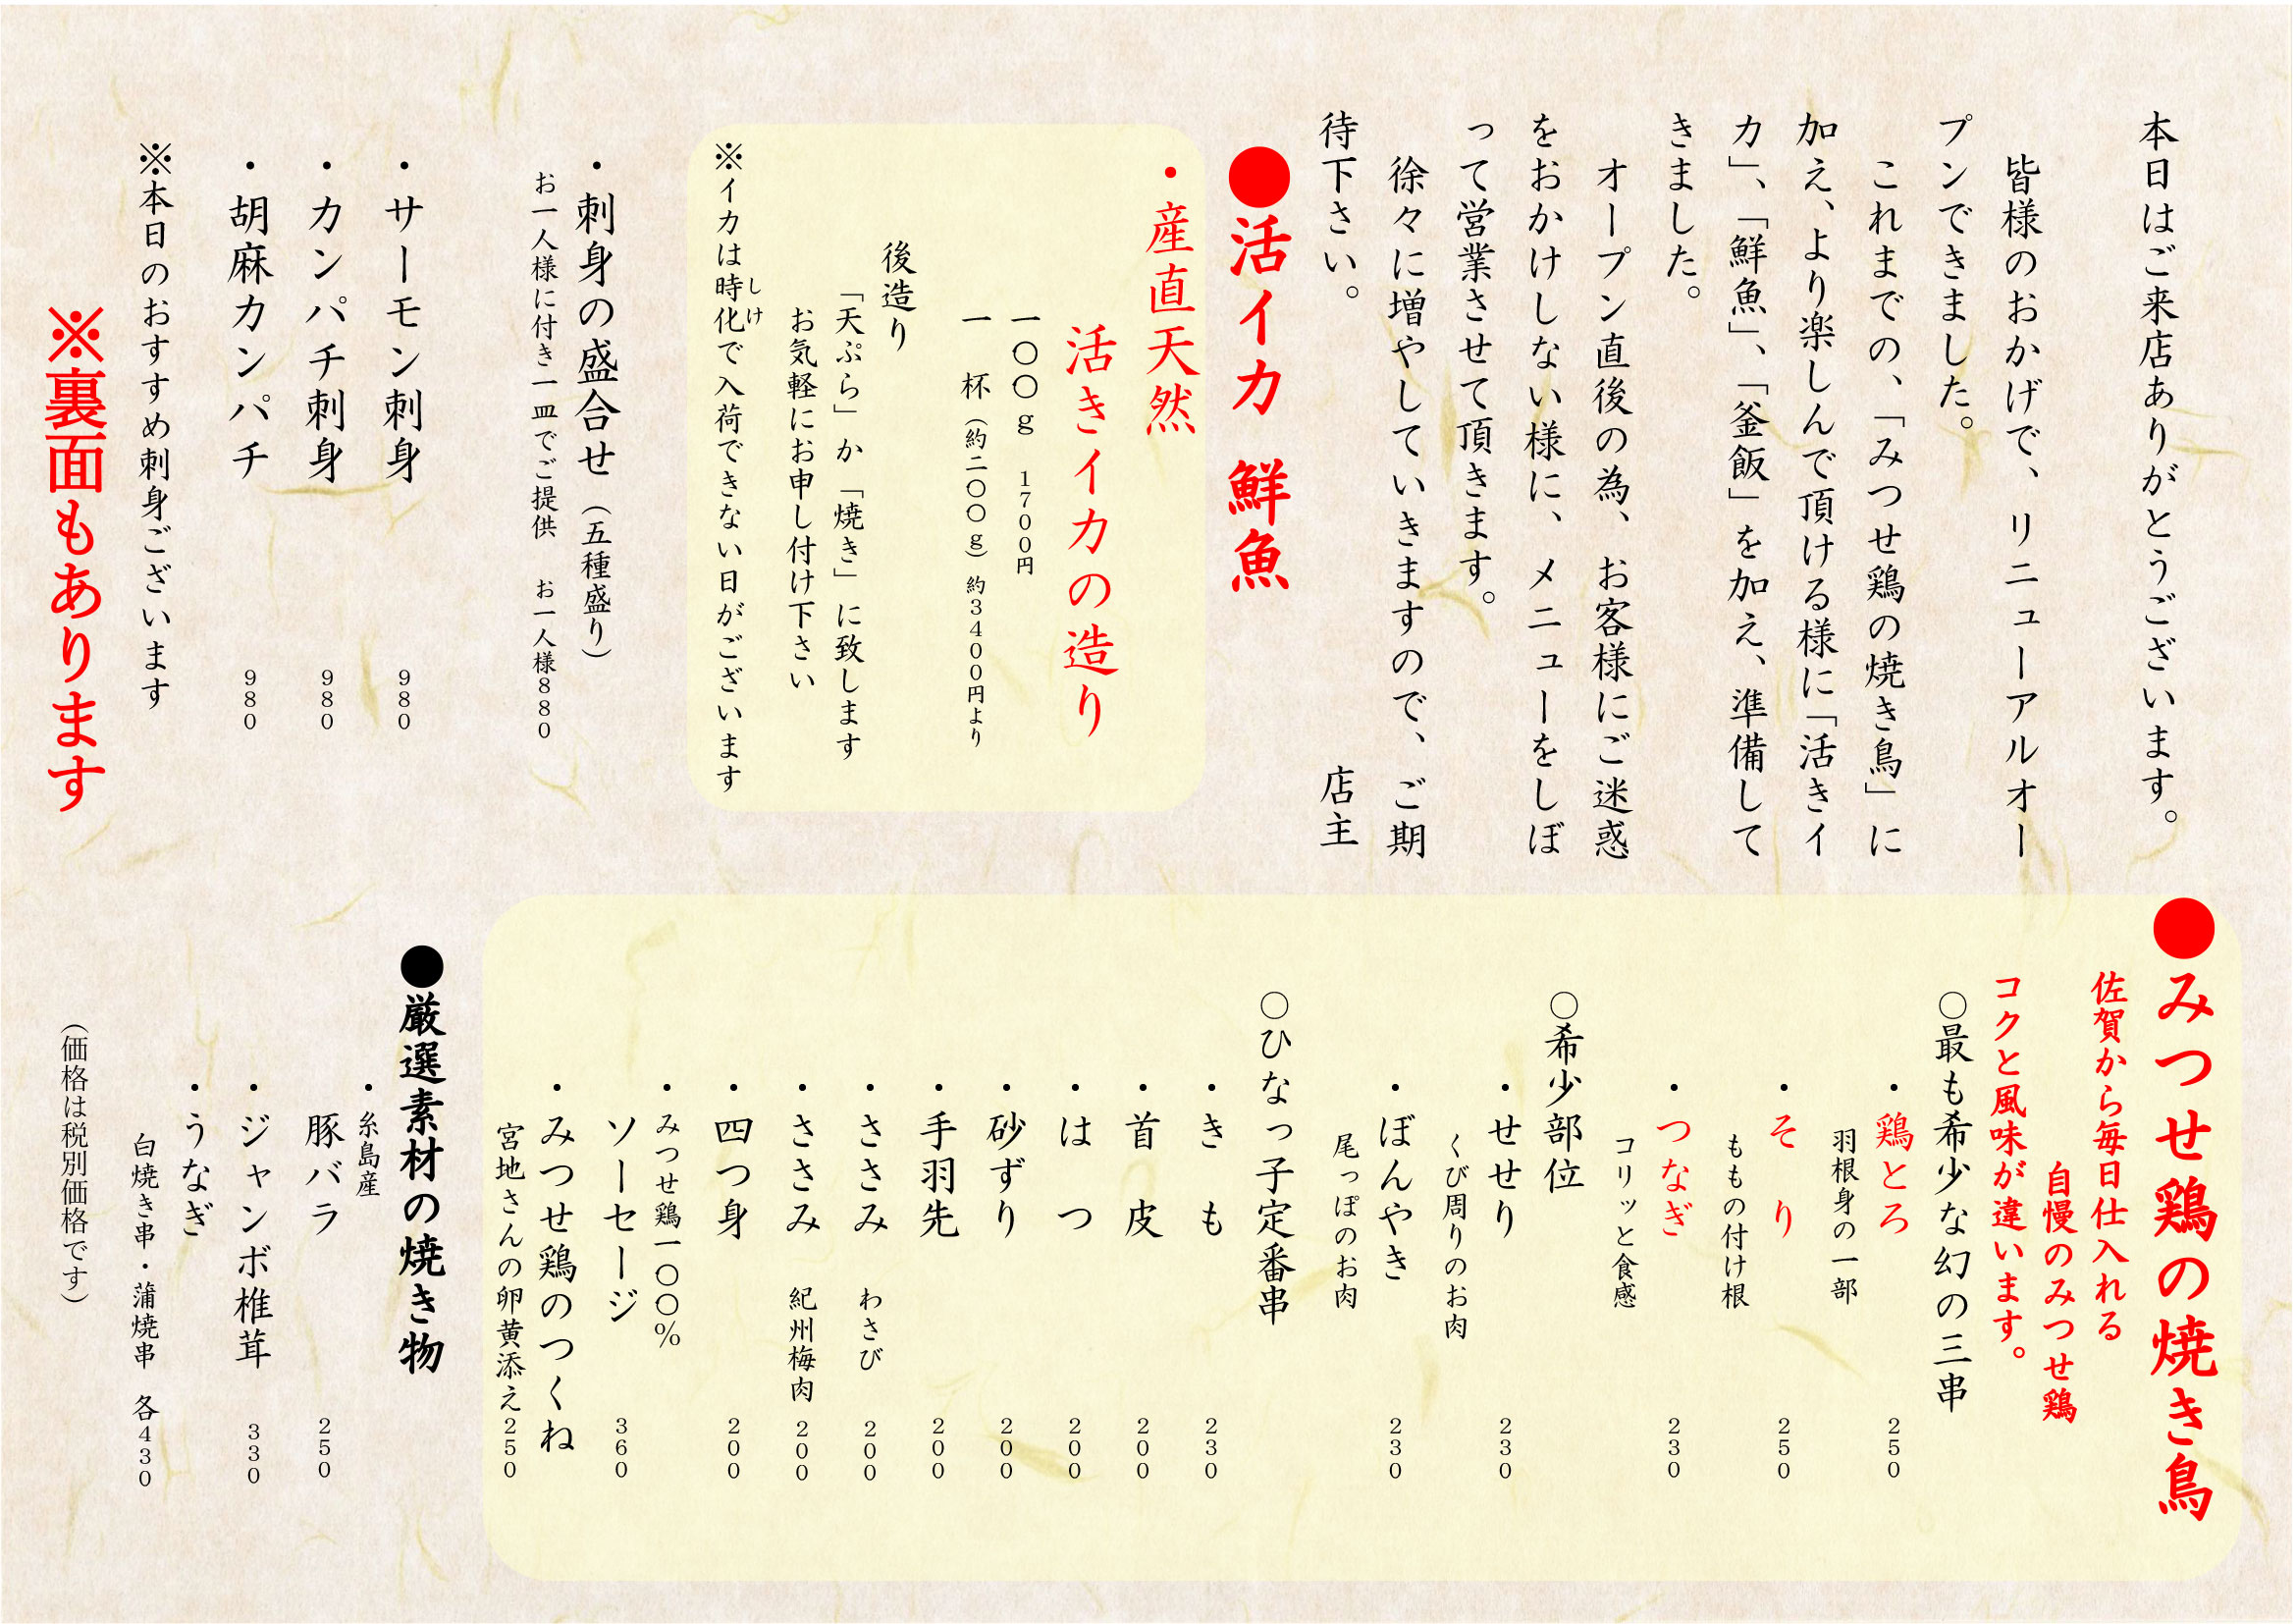 本日はご来店ありがとうございます。
皆様のおかげで、リニューアルオー
プンできました。
これまでの、「みつせ鶏の焼き鳥」に
加え、より楽しんで頂ける様に「活きイ
カ」、「鮮魚」、「釜飯」を加え、準備して
きました。
オープン直後の為、お客様にご迷惑
をおかけしない様に、メニューをしぼ
って営業させて頂きます。
徐々に増やしていきますので、ご期
待下さい。 店主
●活イカ 鮮魚
・産直天然
活きイカの造り
一〇〇g 1700円
一 杯(約二〇〇g) 約3400円より
後造り
「天ぷら」か「焼き」に致します
お気軽にお申し付け下さい
しけ
※イカは時化で入荷できない日がございます
・刺身の盛合せ(五種盛り)
お一人様に付き一皿でご提供 お一人様880
・サーモン刺身 980
・カンパチ刺身 980
・胡麻カンパチ 980
※本日のおすすめ刺身ございます
※裏面もあります
●みつせ鶏の焼き鳥
佐賀から毎日仕入れる
自慢のみつせ鶏
コクと風味が違います。
〇最も希少な幻の三串
・鶏とろ 250
羽根身の一部
・そ り 250
ももの付け根
・つなぎ 230
コリッと食感
〇希少部位
・せせり 230
くび周りのお肉
・ぼんやき 230
尾っぽのお肉
〇ひなっ子定番串
・き も 230
・首 皮 200
・は つ 200
・砂ずり 200
・手羽先 200
・ささみ わさび 200
・ささみ 紀州梅肉 200
・四つ身 200
・みつせ鶏一〇〇%
ソーセージ 360
・みつせ鶏のつくね
宮地さんの卵黄添え 250
●厳選素材の焼き物
・糸島産
豚バラ 250
・ジャンボ椎茸 330
・うなぎ
白焼き串・蒲焼串 各430
(価格は税別価格です)